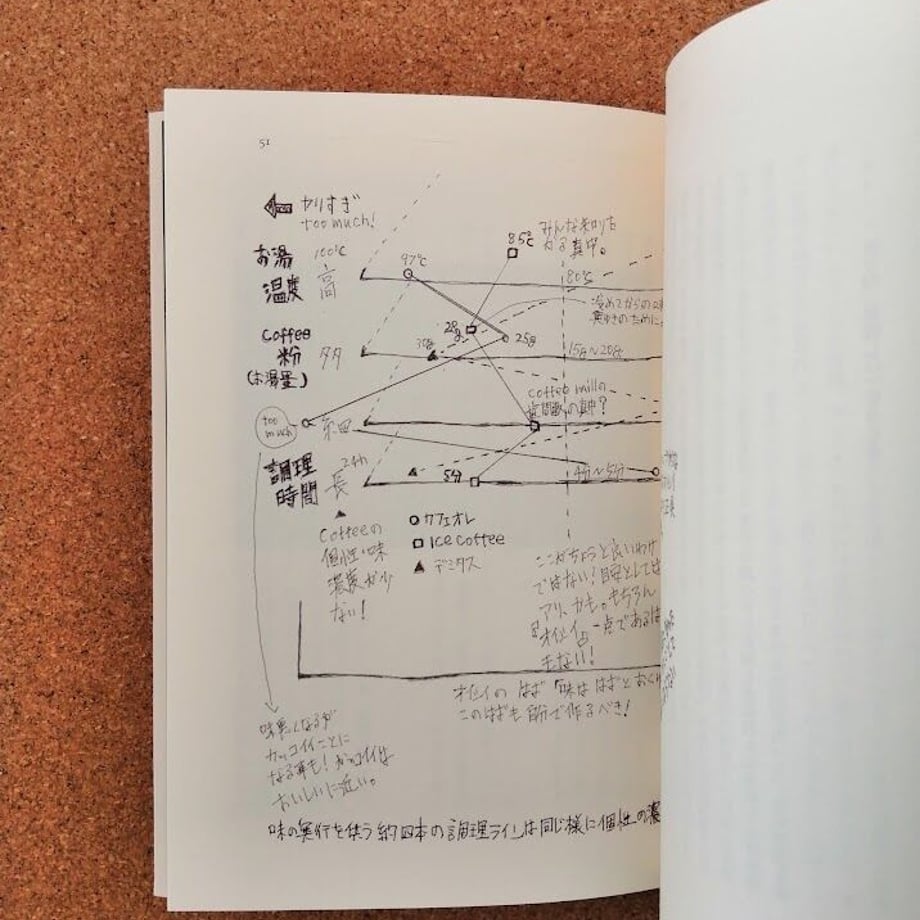 51
やりすぎ
too much!
お湯
温度
100℃
高
97℃
85℃
みんな知りも
ねる真中。
80℃
冷めてからの
Coffee
粉
(お湯量)
多
28g
30g
25g
15g〜20g
coffee millの
の真中?
too
much
細
調理
時間
24h
長
5分
4分〜5分
Coffeeの
個性・味
濃度が少
ない!
カフェオレ
Ice coffee
デミタス
ここがちょうど良いわけ
ではない?目安としては
アリ、かも。もちろん
一点であるは
もない!
オイシイの はば 味は はばとおくゆ
このはばも自分で作るべき!
味悪くなるが
カッコイイことに
なる事も!カッコイイは
おいしいに近い。
味の実行を供う約四本の調理ラインは同じ様に個性の濃